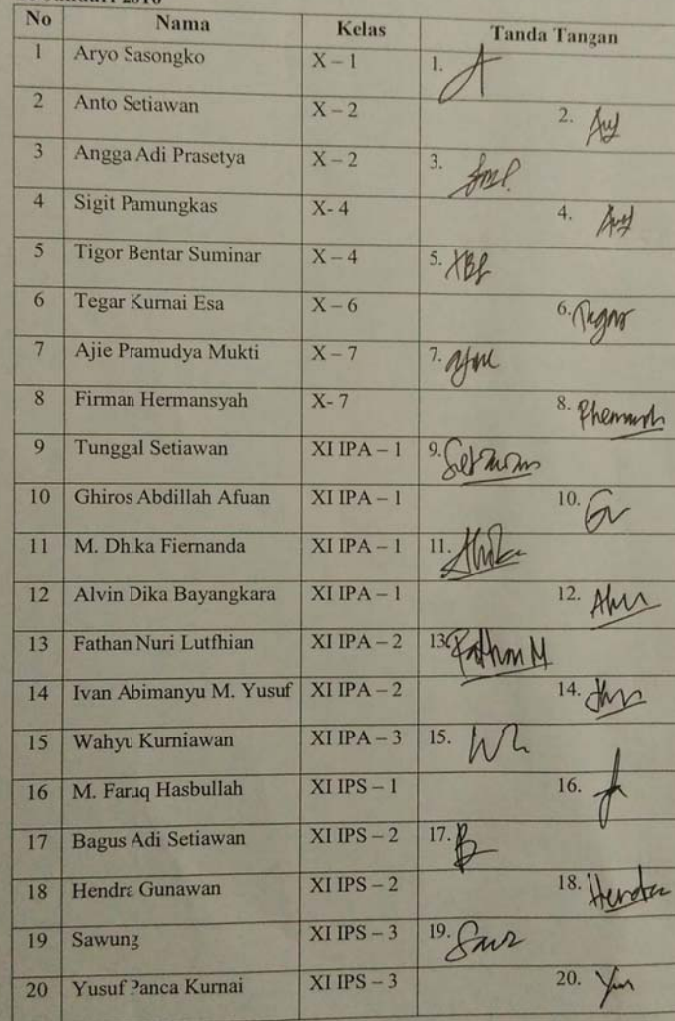 No Nama Kelas Tanda Tangan
1 Aryo Sasongko X – 1 1.
2 Anto Setiawan X – 2 2.
3 Angga Adi Prasetya X – 2 3.
4 Sigit Pamungkas X- 4 4.
5 Tigor Bentar Suminar X – 4 5.
6 Tegar Kurnai Esa X – 6 6. Tegar
7 Ajie Pramudya Mukti X – 7 7.
8 Firman Hermansyah X- 7 8.
9 Tunggal Setiawan XI IPA – 1 9.
10 Ghiros Abdillah Afuan XI IPA – 1 10.
11 M. Dhika Fiernanda XI IPA – 1 11.
12 Alvin Dika Bayangkara XI IPA – 1 12.
13 Fathan Nuri Lutfhian XI IPA – 2 13. Fathan M
14 Ivan Abimanyu M. Yusuf XI IPA – 2 14.
15 Wahyu Kurniawan XI IPA – 3 15.
16 M. Faruq Hasbullah XI IPS – 1 16.
17 Bagus Adi Setiawan XI IPS – 2 17.
18 Hendra Gunawan XI IPS – 2 18. Hendra
19 Sawung XI IPS – 3 19.
20 Yusuf Panca Kurnai XI IPS – 3 20.